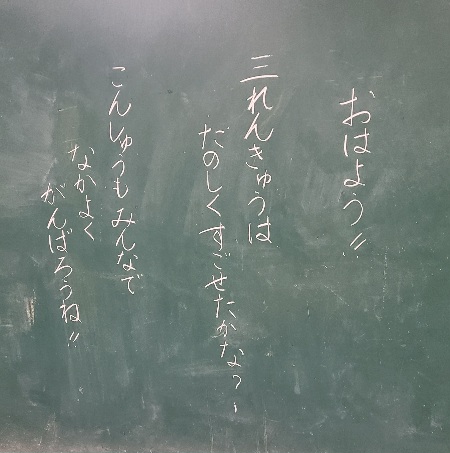 おはよう!!
三れんきゅうは
だのしくすごせたかな?
こんしゅうもみんなで
なかよく
がんばろうね!!